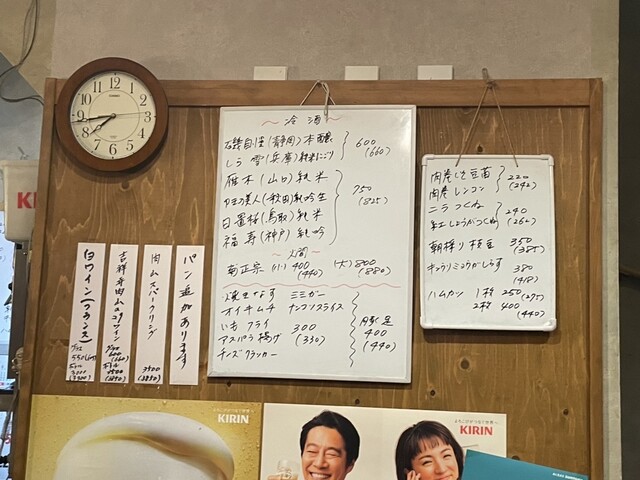 〜冷酒〜
磯自慢(静岡)本醸
しら雪(兵庫)純米にごり
600
(660)
雁木(山口)純米
(秋田)純吟生
日置桜(鳥取)純米
福寿(神戸)純吟
750
(825)
〜人間〜
菊正宗(小)400 (大)800
(440) (880)
焼きなす ミミガー
オイキムチ ナンコツスライス
いもフライ 300
アスパラ揚げ (330)
チーズクラッカー
豚足
400
(440)
肉巻しそ豆苗
肉巻レンコン
220
(242)
ニラつくね
紅しょうがつくね
240
(264)
朝採り枝豆 350
(385)
キュウリミョウガしらす 380
(418)
ハムカツ 1枚 250 (275)
2枚 400
(440)
パン追加あります
肉ムスパークリング
3500
(3850)
吉祥寺肉ムaうワイン
グラス
600
(660)
ボトル
3500
(3850)
白ワイン(フランス)
グラス
550
ボトル
3000
(3300)
KIRIN
KIRIN
KIRIN